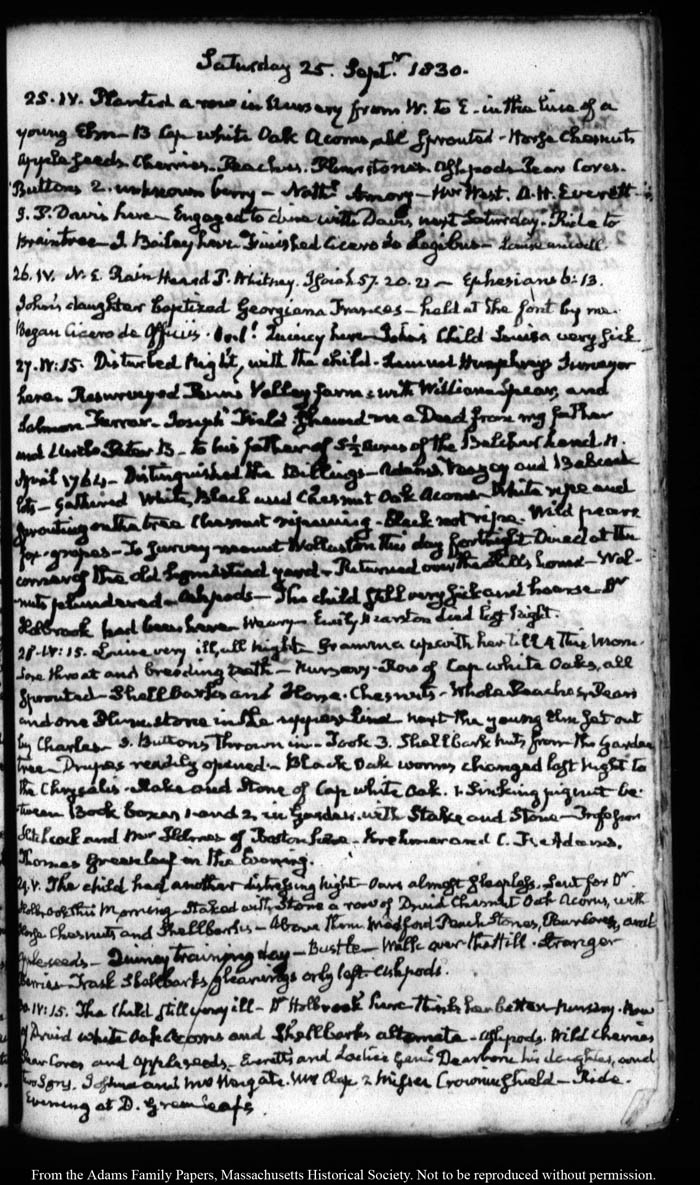 Saturday 25. Septr. 1830.
25. IV. Planted a row in Nursery from W. to E. in the line of a
young Elm — 13 Cap white Oak Acorns all Sprouted - Horse Chesnuts
Apple seeds. Cherries. Peaches. Plumstones. Ashpods Pear Cores.
Buttons 2. unknown berry — Nathl. Amory — Mr West. A. H. Everett
I. P. Davis here — Engaged to dine with Davis next Saturday. Ride to
Braintree — J. Bailey here. Finished Cicero de Legibus — Louisa unwell.
26. IV. N. E. Rain Heard P. Whitney. Isaiah 57. 20. 21 — Ephesians 6: 13.
John's daughter baptized Georgiana Frances — held at the font by me.
Began Cicero de Officiis. Quincy here John's Child Louisa very sick
27. IV: 15. Disturbed Night, with the child. Lemuel Humphreys Surveyor
here. Resurveyed Penn's Valley farm; with William Spear, and
Salmon Farrar. Joseph Field shewed me a Deed from my father
and Uncle Peter B — to his father of 5½ Acres of the Belcher land 11.
April 1764 — Distinguished the Billings — Adams Veazey and Babcock
lots — Gathered White, Black and Chesnut Oak Acorns — White ripe and
Sprouting on the tree Chesnut ripening — Black not ripe. Wild pears
fox-grapes — To Survey mount Wollaston this day fortnight Dined at the
corner of the old homestead yard — Returned over the Hills home — Wal-
nuts plundered — Ashpods — The child still very sick and hoarse — Dr
Holbrook had been here. Weary — Emily Marston died last Night.
28. IV: 15. Louisa very ill, all Night — Gramma up with her till 4 this Morn.
Sore throat and breeding teeth — Nursery. Row of Cap white Oaks, all
Sprouted — Shellbarks and Horse-Chesnuts — Whole Peaches, Pears
and one Plum stone in the upper line next the young Elm set out
by Charles — 3. Buttons thrown in — Took 3. Shellbark nuts from the Garden
tree — Drupes readily opened — Black Oak worms changed last Night to
the Chrysalis. Stake and Stone of Cap white Oak. & Sinking pignut be-
tween Book boxes 1 and 2, in Garden. with Stake and Stone — Professor
Hitchcock and Mr Holmes of Boston here — Krehmer and C. F. Adams.
Thomas Greenleaf in the Evening.
29. V. The child had another distressing Night — Ours almost sleepless. Sent for Dr
Holbrook this Morning — Staked with Stone a row of Druid Chesnut Oak Acorns, with
Horse Chesnuts and Shellbarks — Above them Medford Peach Stones, Pear Cores, and
Apple seeds — Quincy training day — Bustle — Walk over the Hill. Stranger
Berries — Trask Shellbarks, gleanings only left. Ashpods.
30. IV: 15. The Child still very ill — Dr Holbrook here thinks her better. Nursery. Row
of Druid white Oak Acorns and Shellbarks alternate — Ashpods. Wild Cherries
Pear Cores and Appleseeds. Everetts and Ladies Genl. Dearborn his daughter, and
two Sons. Joshua and Mrs Wingate. Mr 2 Misses Crowninshield — Ride.
Evening at D. Greenleafs.
From the Adams Family Papers, Massachusetts Historical Society. Not to be reproduced without permission.